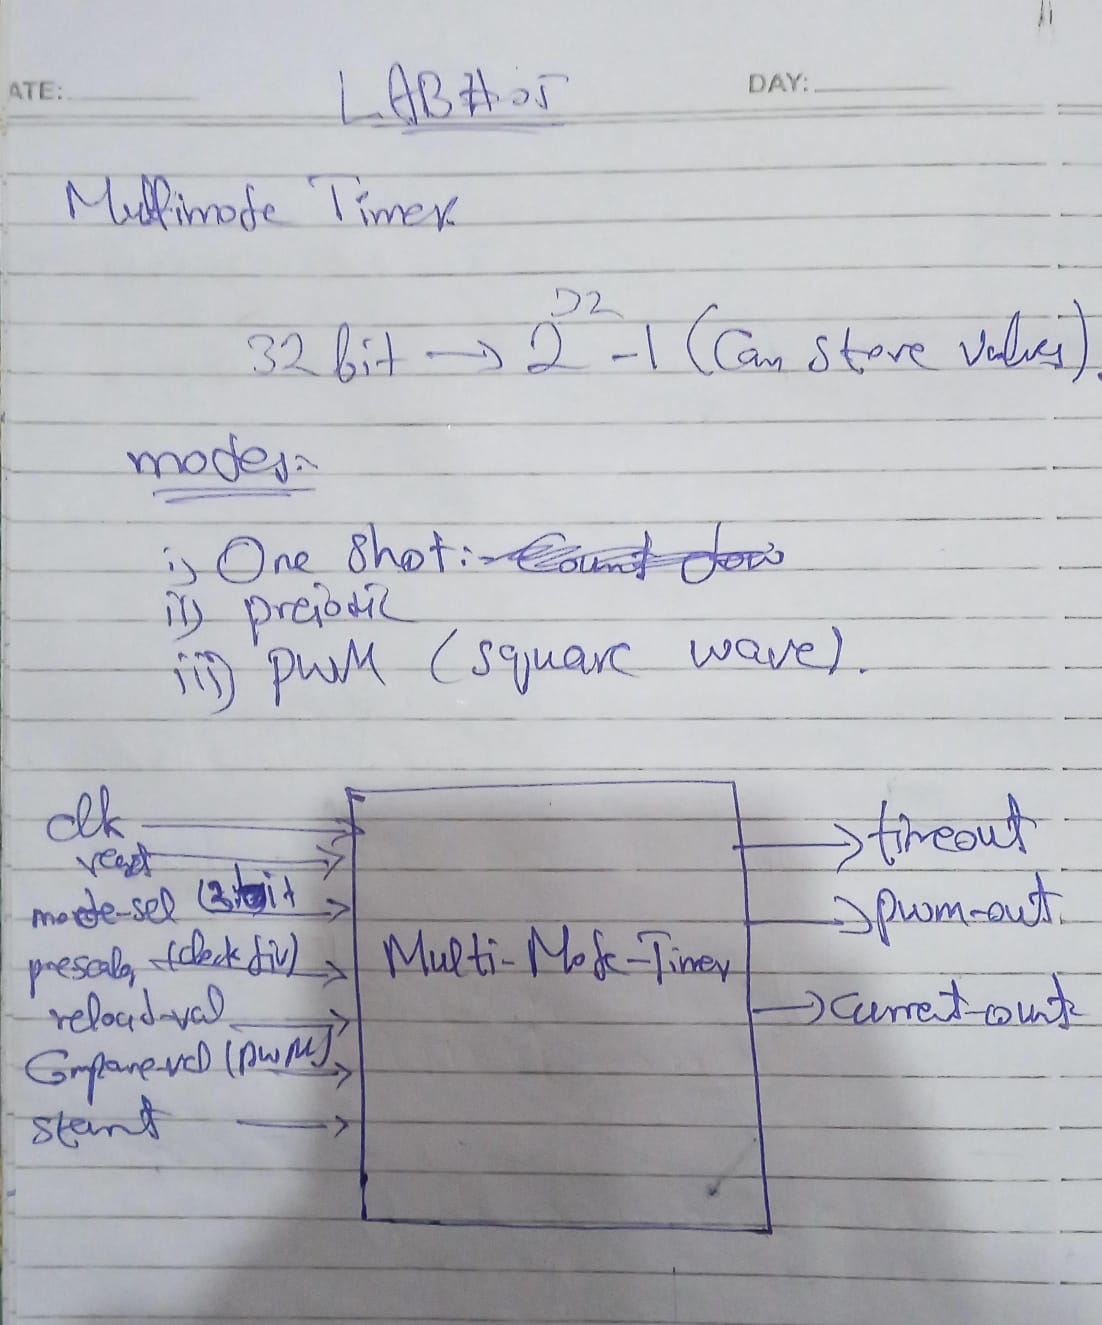 ATE:
DAY:
LAB # 05
Multimode Timer
32 bit → 2^32 -1 (Can store values).
modes:-
i) One Shot:- Count dow
ii) preiodic
iii) PWM (square wave).
clk
reset
mode-sel (2bit
prescaler (clock div)
reload-val
Compare-val (PWM)
start
Multi-Mode-Timer
timeout
pwm-out
Current-count